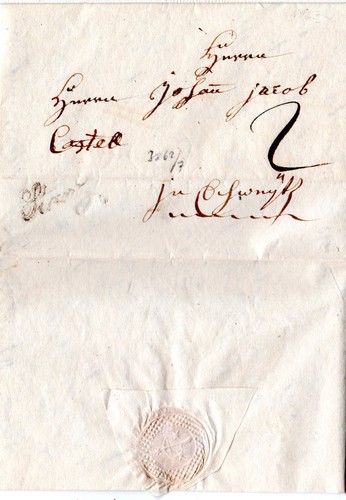 Herrn
Herrn Johan Jacob
Castell
2
in Schwÿtz